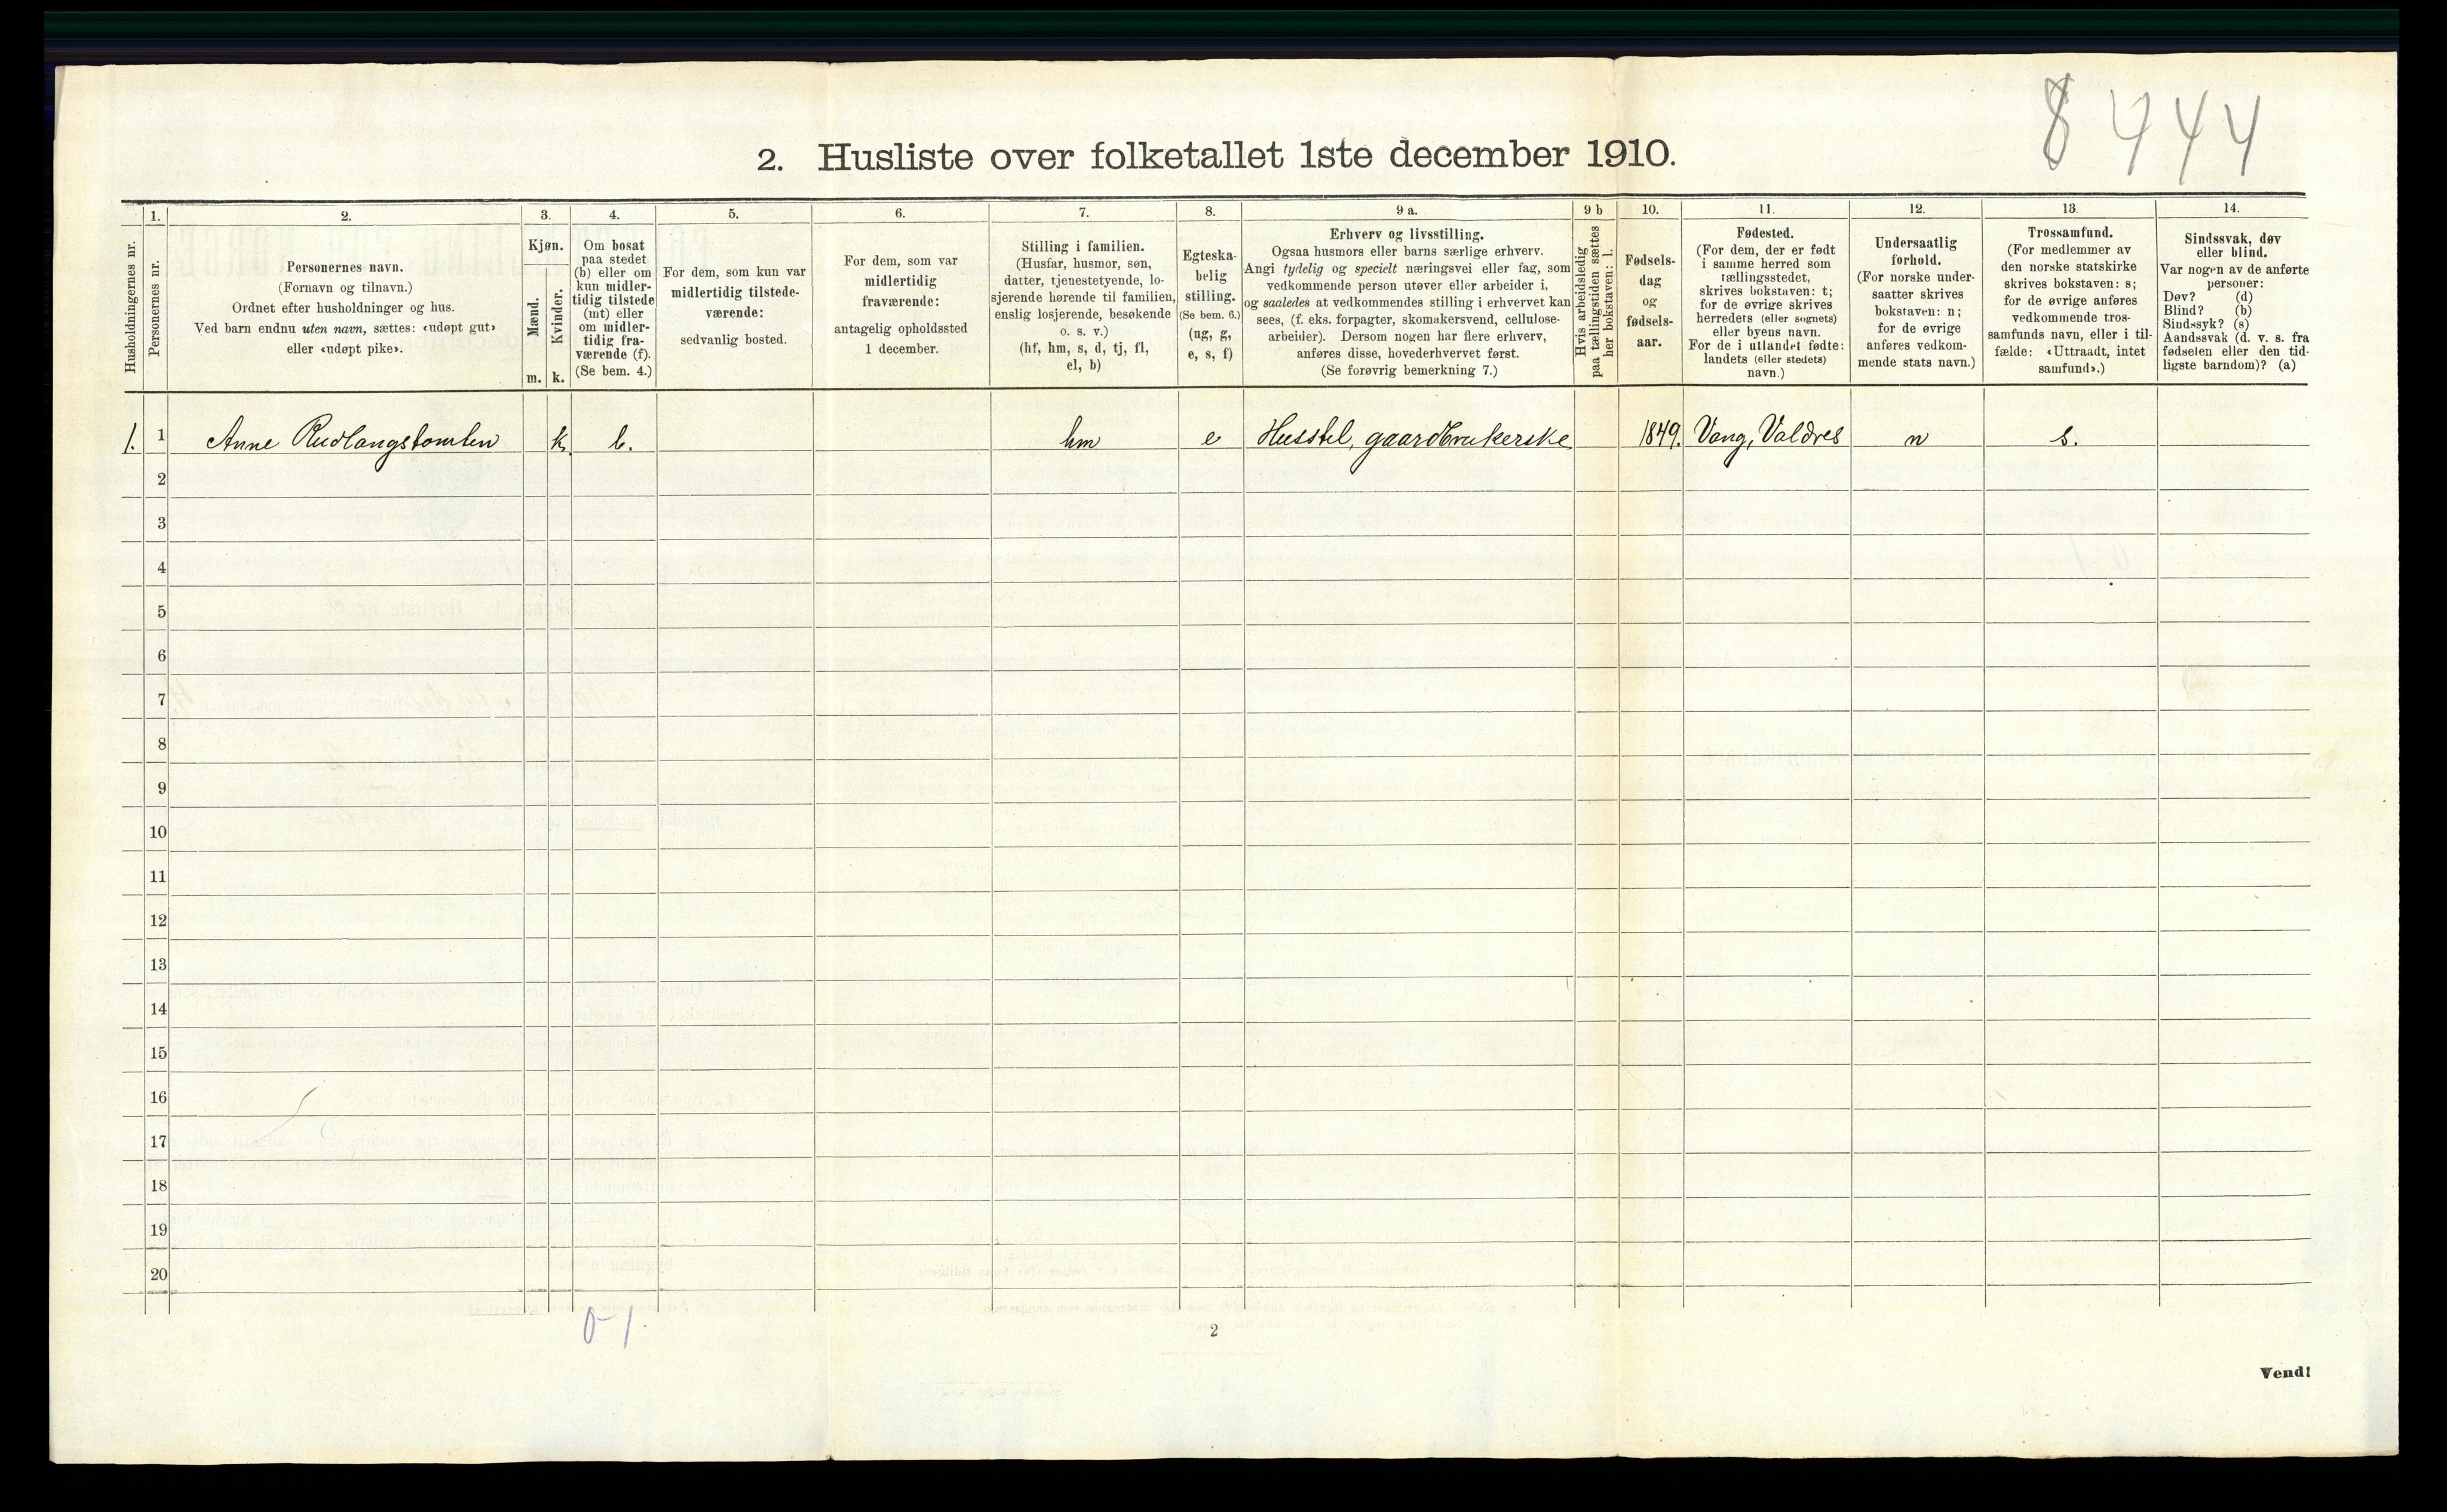 8444
2. Husliste over folketallet 1ste december 1910.
Husholdningernes nr.
1.
Personernes nr.
2.
Personernes navn.
(Fornavn og tilnavn.)
Ordnet efter husholdninger og hus.
Ved barn endnu uten navn, sættes: «udøpt gut»
eller «udøpt pike».
3.
Kjøn.
Mænd.
Kvinder.
m. k.
4.
Om bosat
paa stedet
(b) eller om
kun midler-
tidig tilstede
(mt) eller
om midler-
tidig fra-
værende (f).
(Se bem. 4.)
5.
For dem, som kun var
midlertidig tilstede-
værende:
sedvanlig bosted.
6.
For dem, som var
midlertidig
fraværende:
antagelig opholdssted
1 december.
7.
Stilling i familien.
(Husfar, husmor, søn,
datter, tjenestetyende, lo-
sjerende hørende til familien,
enslig losjerende, besøkende
o. s. v.)
(hf, hm, s, d, tj, fl,
el, b)
8.
Egteska-
belig
stilling.
(Se bem. 6.)
(ug, g,
e, s, f)
9 a.
Erhverv og livsstilling.
Ogsaa husmors eller barns særlige erhverv.
Angi tydelig og specielt næringsvei eller fag, som
vedkommende person utøver eller arbeider i,
og saaledes at vedkommendes stilling i erhvervet kan
sees, (f. eks. forpagter, skomakersvend, cellulose-
arbeider). Dersom nogen har flere erhverv,
anføres disse, hovederhvervet først.
(Se forøvrig bemerkning 7.)
9 b
Hvis arbeidsledig
paa tællingstiden sættes
her bokstaven: l.
10.
Fødsels-
dag
og
fødsels-
aar.
11.
Fødested.
(For dem, der er født
i samme herred som
tællingsstedet,
skrives bokstaven: t;
for de øvrige skrives
herredets (eller sognets)
eller byens navn.
For de i utlandet fødte:
landets (eller stedets)
navn.)
12.
Undersaatlig
forhold.
(For norske under-
saatter skrives
bokstaven: n;
for de øvrige
anføres vedkom-
mende stats navn.)
13.
Trossamfund.
(For medlemmer av
den norske statskirke
skrives bokstaven: s;
for de øvrige anføres
vedkommende tros-
samfunds navn, eller i til-
fælde: «Uttraadt, intet
samfund».)
14.
Sindssvak, døv
eller blind.
Var nogen av de anførte
personer:
Døv? (d)
Blind? (b)
Sindssyk? (s)
Aandssvak (d. v. s. fra
fødselen eller den tid-
ligste barndom)? (a)
1. 1 Anne Rudlangstomten k. b. hm e Husstel, gaardbrukerske 1849. Vang, Valdres n s.
2
3
4
5
6
7
8
9
10
11
12
13
14
15
16
17
18
19
20
0-1
2
Vend!